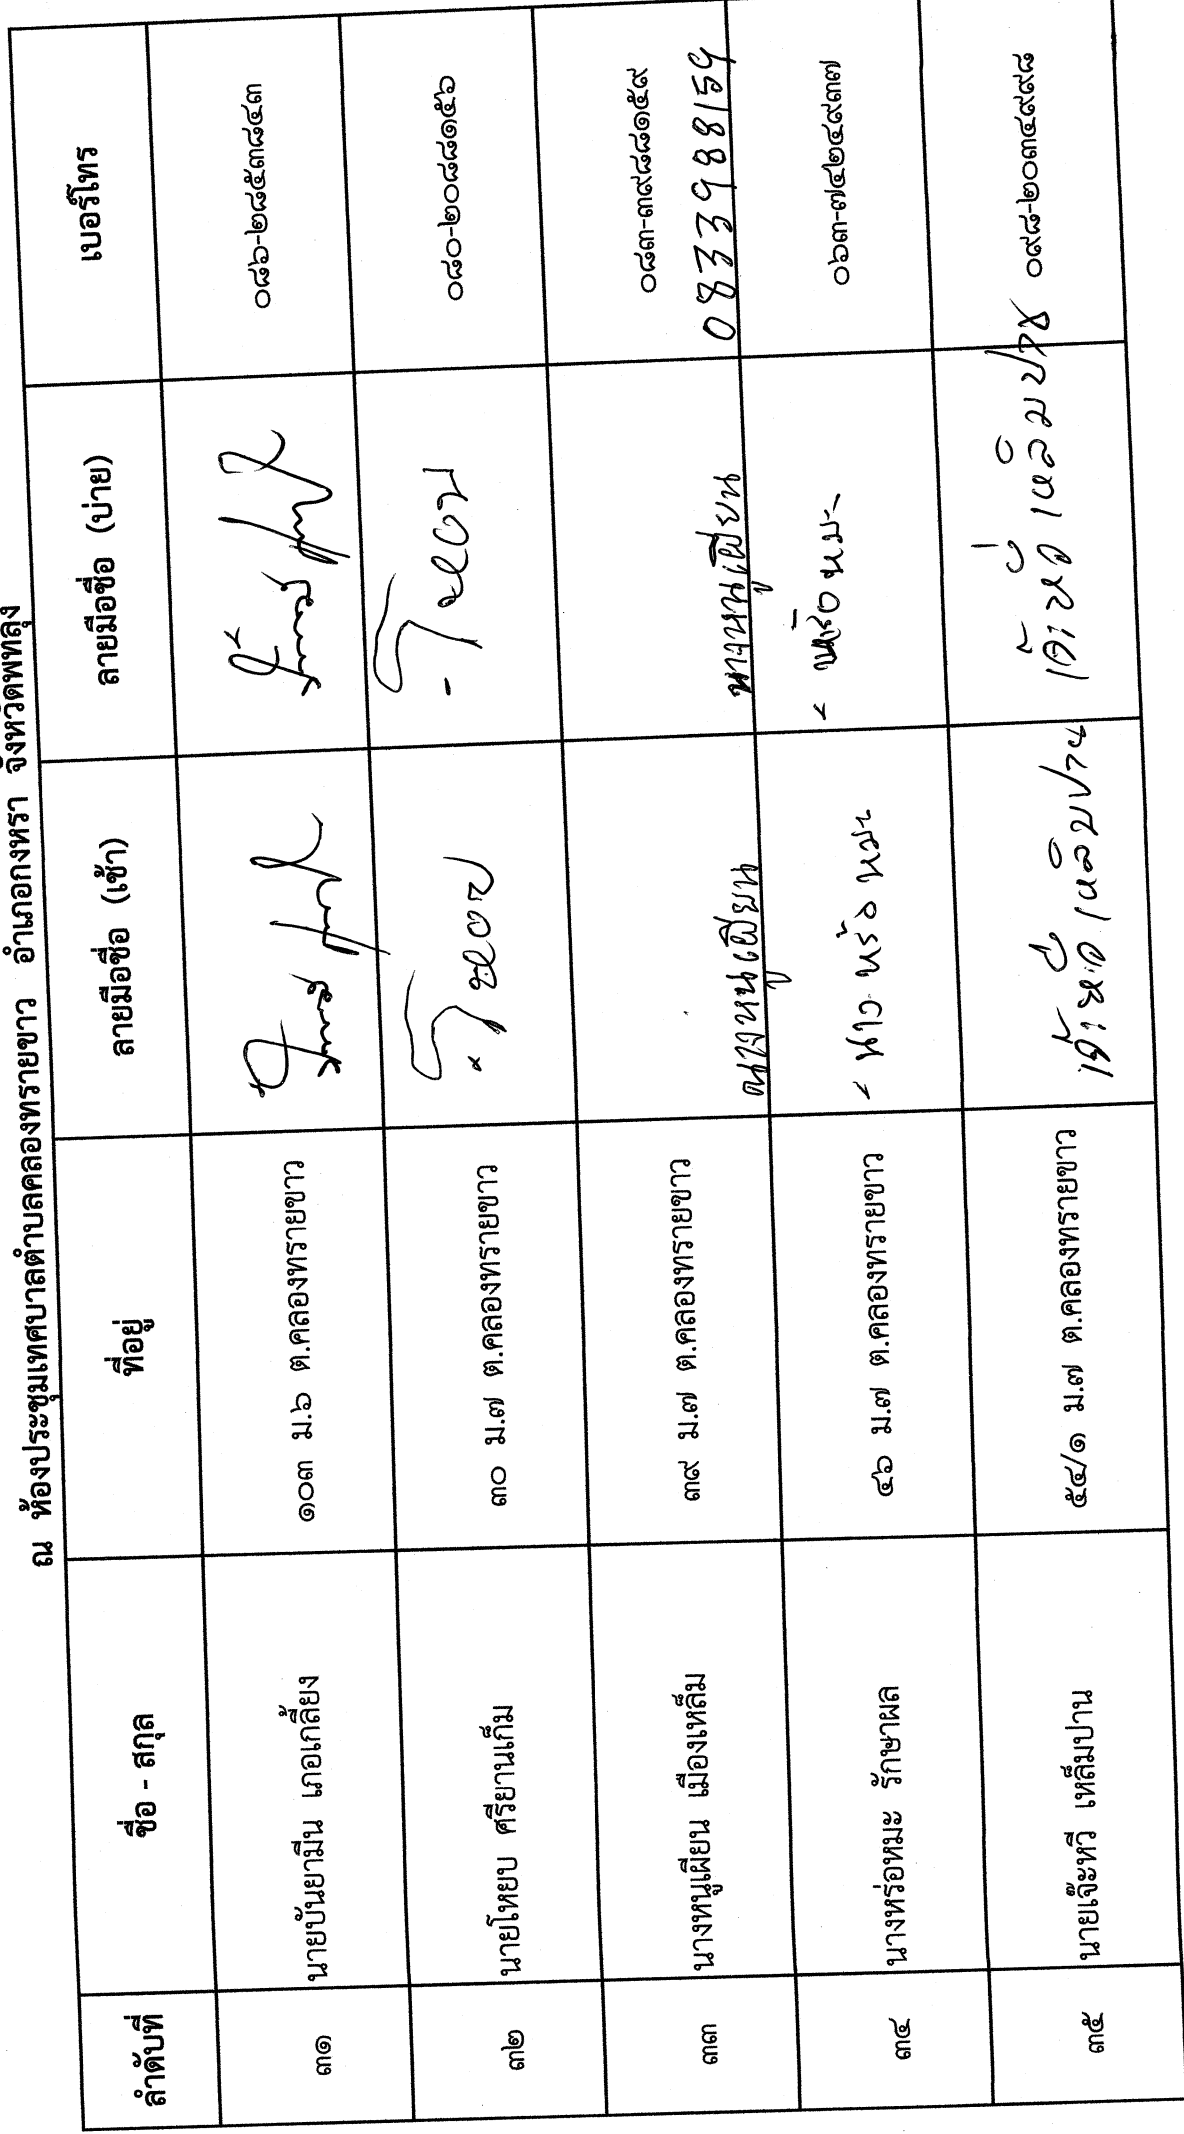 ณ ห้องประชุมเทศบาลตำบลคลองทรายขาว อำเภอกงหรา จังหวัดพัทลุง
ลำดับที่ ชื่อ - สกุล ที่อยู่ ลายมือชื่อ (เช้า) ลายมือชื่อ (บ่าย) เบอร์โทร
๓๑ นายบันยามีน เภอเกลี้ยง ๑๐๓ ม.๖ ต.คลองทรายขาว ๐๘๖-๒๘๕๓๘๔๓
๓๒ นายโหยบ ศรียานเก็ม ๓๐ ม.๗ ต.คลองทรายขาว ๐๘๐-๒๐๘๘๑๕๖
๓๓ นางหนูเผียน เมืองเหล็ม ๓๙ ม.๗ ต.คลองทรายขาว นางหนูเผียน นางหนูเผียน ๐๘๓-๓๙๘๘๑๕๙
0833988159
๓๔ นางหร่อหมะ รักษาผล ๔๖ ม.๗ ต.คลองทรายขาว ๐๖๓-๗๔๒๔๙๓๗
๓๕ นายเจ๊ะหวี เหล็มปาน ๕๔/๑ ม.๗ ต.คลองทรายขาว ๐๙๘-๒๐๓๔๙๙๘